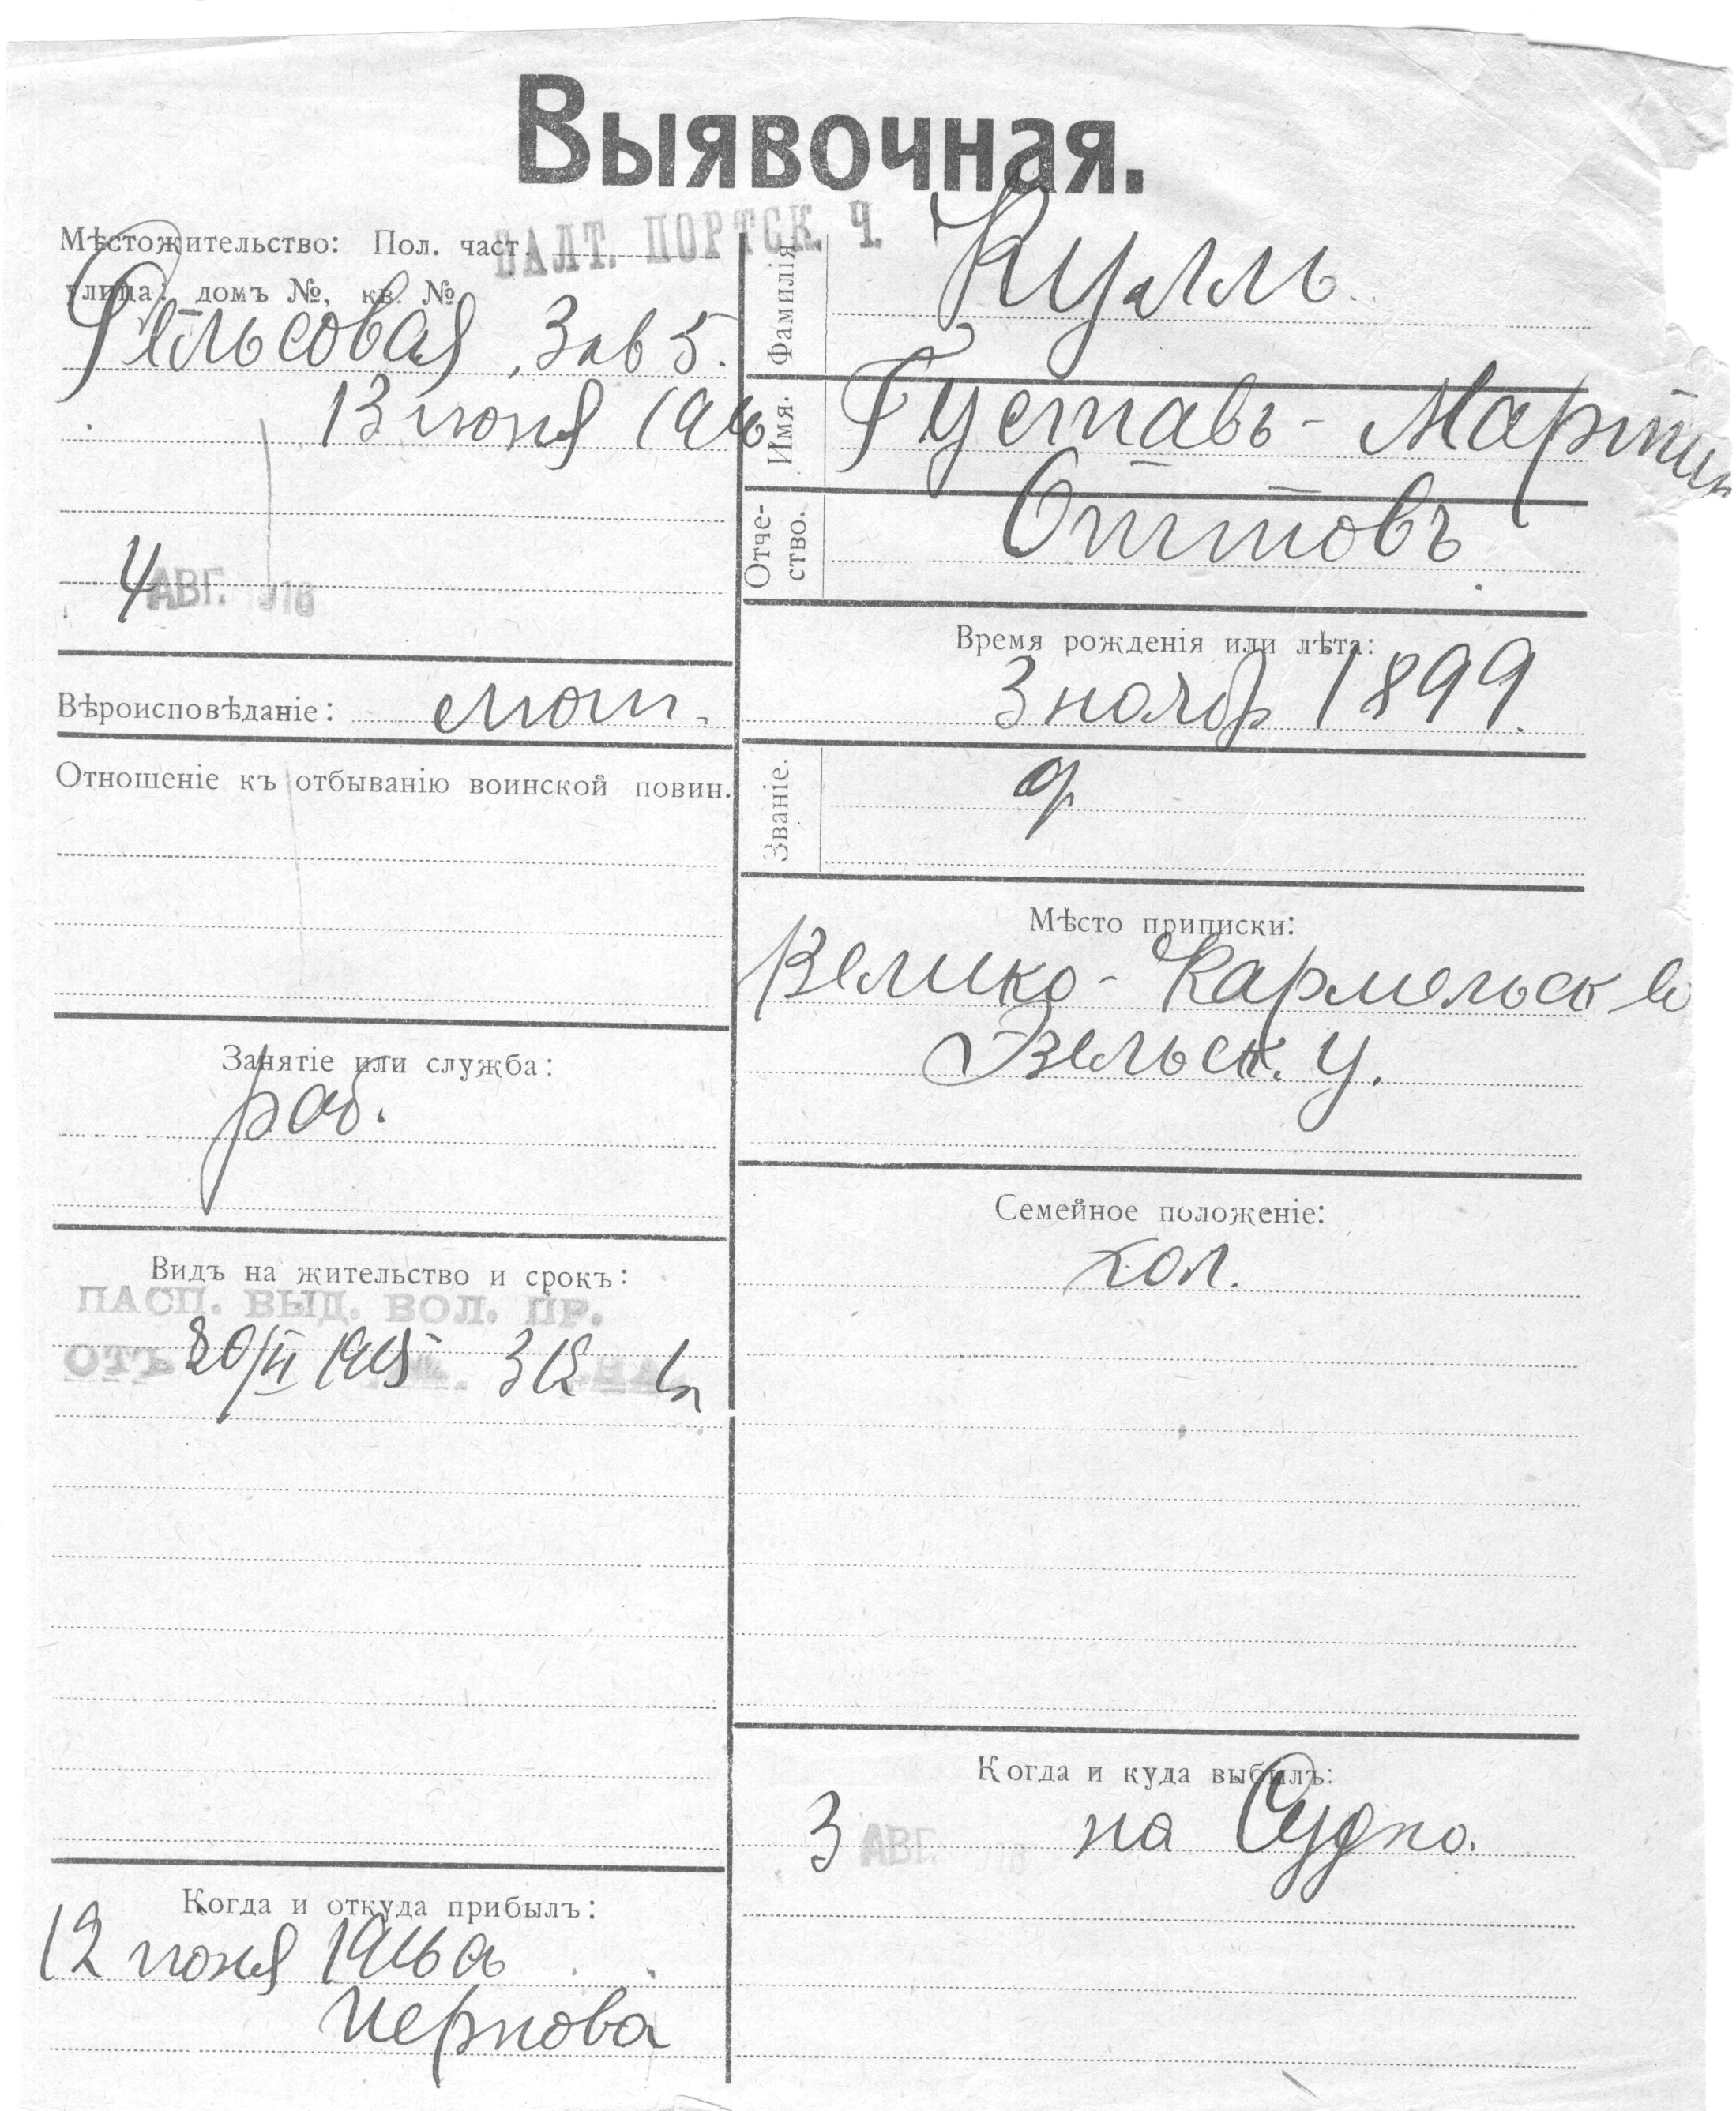 Выявочная.
Мѣстожительство: Пол. част. БАЛТ. ПОРТСК. Ч.
улица: домъ №, кв. №
Рельсовая, 3 кв 5.
13 июня 1916
4 АВГ. 1916
Вѣроисповѣданіе: лют.
Отношеніе къ отбыванію воинской повин.
Занятіе или служба:
раб.
Видъ на жительство и срокъ:
ПАСП. ВЫД. ВОЛ. ПР.
ОТЪ 1915 312
Когда и откуда прибылъ:
12 июня 1916
Чернова
Фамилія Кулль
Имя. Густавъ-Мартин
Отчество. Оттовъ
Время рожденія или лѣта:
3 ноября 1899.
Званіе.
Мѣсто приписки:
Велико-Кармельск в
Эзельск. у.
Семейное положеніе:
хол.
Когда и куда выбылъ:
3 АВГ. 1916 на Судно.